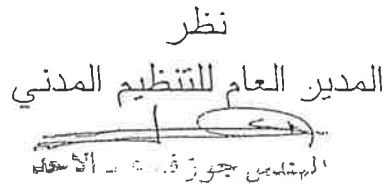 نظر
المدير العام للتنظيم المدني
المهندس جوز